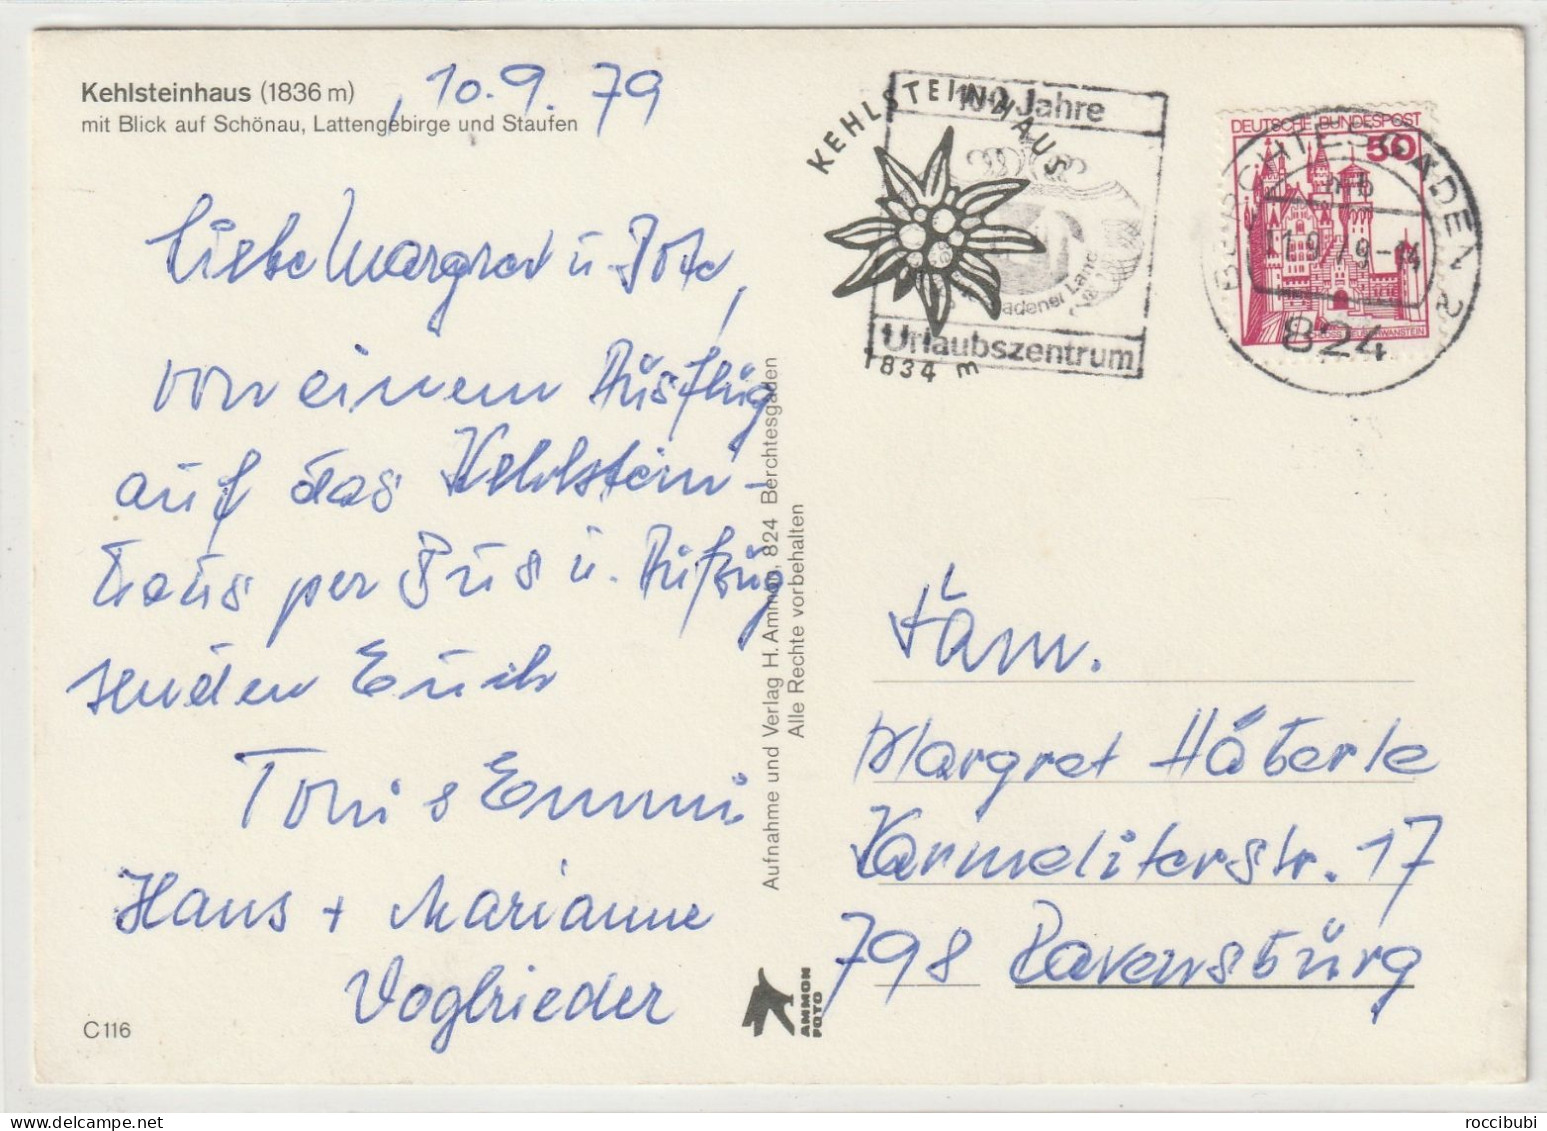 Kehlsteinhaus (1836 m)
mit Blick auf Schönau, Lattengebirge und Staufen
, 10.9.79
Liebe Margret u. Pote,
von einem Ausflug
auf das Kehlstein-
haus per Bus u. Aufzug
senden Euch
Toni & Emmi
Hans + Marianne
Voglrieder
C 116
Aufnahme und Verlag H. Ammon, 824 Berchtesgaden
Alle Rechte vorbehalten
AMMON
FOTO
KEHLSTEINHAUS
1834 m
100 Jahre
adener Land
Urlaubszentrum
DEUTSCHE BUNDESPOST
50
BERCHTESGADEN 2
mb
11.9.79-14
824
Fam.
Margret Häberle
Karmeliterstr. 17
798 Ravensburg
roccibubi